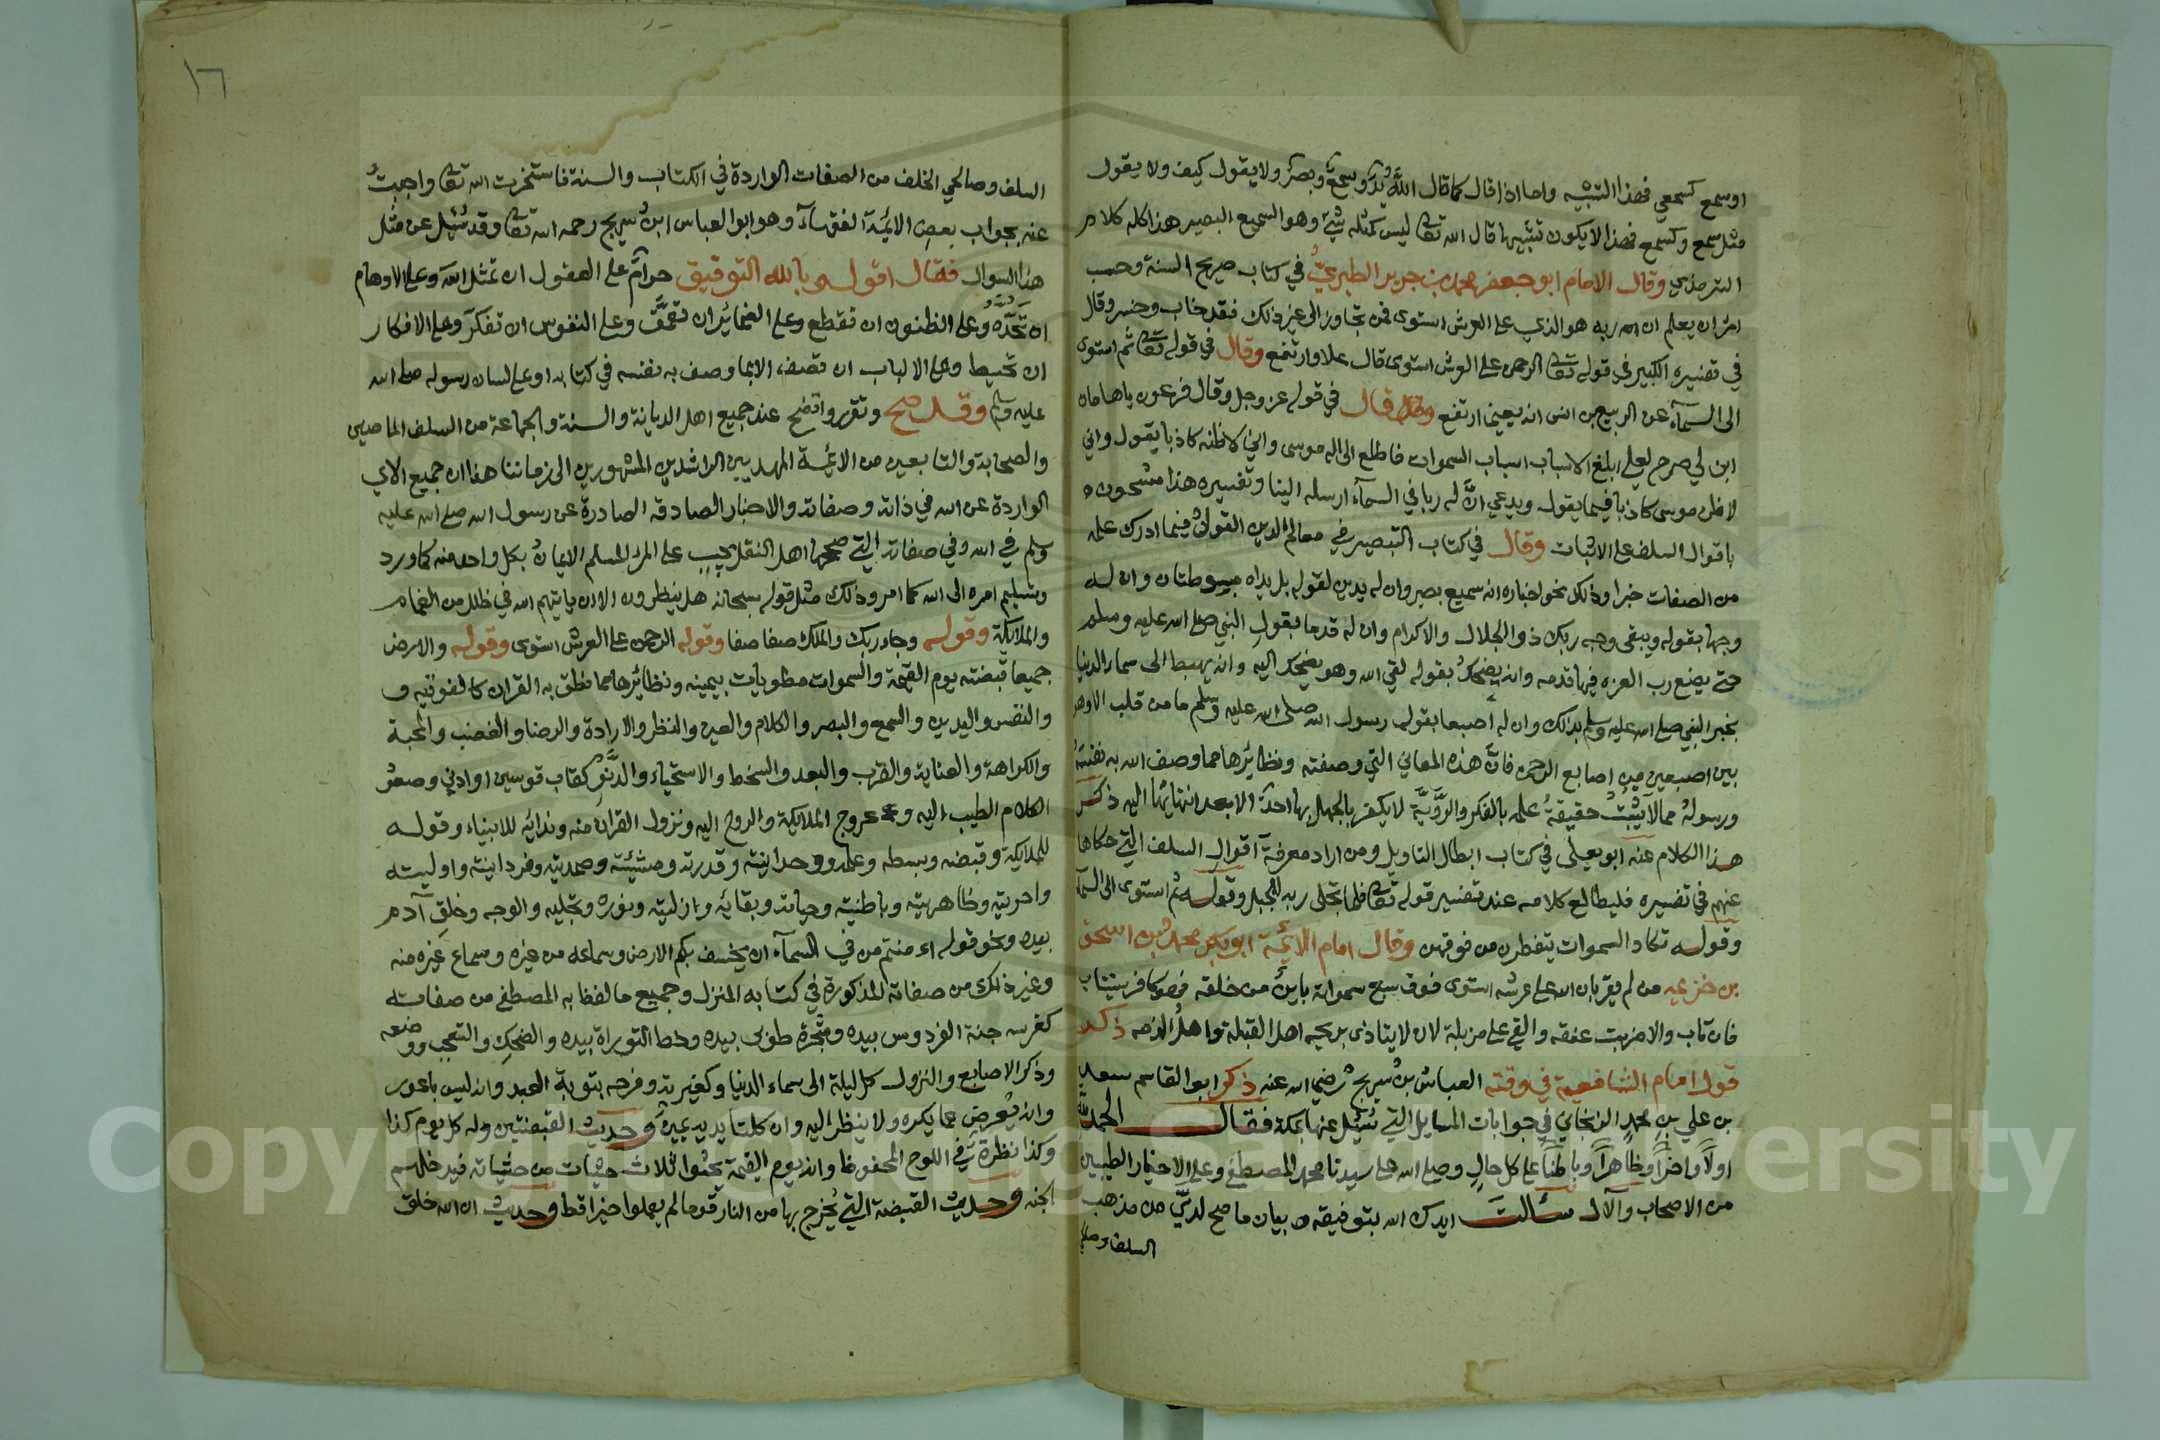 اوسمع كسمعي فهذا التشبيه واما اذا قال كما قال الله يد وسمع وبصر ولا يقول كيف ولا يقول
مثل سمع وكسمع فهذا لا يكون تشبيها قال الله تعا ليس كمثله شئ وهو السميع البصير هذا كله كلام
الترمذي وقال الامام ابو جعفر محمد بن جرير الطبري في كتاب صريح السنة وحسب
امرئ ان يعلم ان الله ربه هو الذي على العرش استوى فمن تجاوز الى غير ذلك فقد خاب وخسر وقال
في تفسيره الكبير في قوله تعا الرحمن على العرش استوى قال علا وارتفع وقال في قوله تعا ثم استوى
الى السمآء عن الربيع بن انس انه يعني ارتفع وقال في قوله عز وجل وقال فرعون يا هامان
ابن لي صرح لعلي ابلغ الاسباب اسباب السموات فاطلع الى اله موسى واني لاظنه كاذبا يقول واني
لاظن موسى كاذبا فيما يقول ويدعي انَّ له ربا في السمآء ارسله الينا وتفسيره هذا مشحون
باقوال السلف على الاثبات وقال في كتاب التبصير في معالم الدين القول فيما ادرك علمه
من الصفات خبرا وذلك نحو اخباره انه سميع بصير وان له يدين لقوله بل يداه مبسوطتان وان له
وجها بقوله ويبقى وجه ربك ذو الجلال والاكرام وان له قدما بقول النبي صلى الله عليه وسلم
حتى يضع رب العزة فيها قدمه وانه يضحك بقوله لقي الله وهو يضحك اليه وانه يهبط الى سماء الدنيا
بخبر النبي صلى الله عليه وسلم بذلك وان له اصبعا بقول رسول الله صلى الله عليه وسلم ما من قلب الا وهو
بين اصبعين من اصابع الرحمن فانَّ هذه المعاني التي وصفته ونظائرها مما وصف الله به نفسه
ورسوله مما لا يثبت حقيقة علمه بالفكر والرَّويَّة لا يكفر بالجهل بها احد الا بعد انتهائها اليه ذكر
هذا الكلام عنه ابو يعلى في كتاب ابطال التاويل ومن اراد معرفة اقوال السلف التي حكاها
عنهم في تفسيره فليطالع كلامه عند تفسير قوله تعا فلما تجلى ربه للجبل وقوله ثم استوى الى السمآ
وقوله تكاد السموات يتفطرن من فوقهن وقال امام الائمة ابو بكر محمد بن اسحق
بن خزيمه من لم يقر بان الله على عرشه استوى فوق سبع سمواته باين من خلقه فهو كافر يستتاب
فان تاب والا ضربت عنقه والقي على مزبلة لان لا يتاذى بريحه اهل القبلة واهل الذمه ذكر
قول امام الشافعية في وقته العباس بن سريج رضي الله عنه ذكر ابو القاسم سعد
بن علي بن محمد الزنجاني في جوابات المسايل التي سُئل عنها بمكة فقال الحمد لله
اولاً واخراً وظاهراً وباطناً على كل حال وصلى الله على سيدنا محمد المصطفى وعلى الاخيار الطيبين
من الاصحاب والآل سألت ايدك الله بتوفيقه بيان ما صح لديَّ من مذهب
السلف وصالحي
١٦
السلف وصالحي الخلف من الصفات الواردة في الكتاب والسنة فاستخرت الله تعا واجبتُ
عنه بجواب بعض الائمة الفقهآء وهو ابو العباس ابن سريج رحمه الله تعا وقد سُئل عن مثل
هذا السوال فقال اقول وبالله التوفيق حرام على العقول ان تمثل الله وعلى الاوهام
ان تَحُدَّه وعلى الظنون ان تقطع وعلى الضمائر ان تعمق وعلى النفوس ان تفكر وعلى الافكار
ان تحيط وعلى الالباب ان تصف الا بما وصف به نفسه في كتابه او على لسان رسوله صلى الله
عليه وسلم وقد صح وتقرر واتضح عند جميع اهل الديانة والسنة والجماعة من السلف الماضيين
والصحابة والتابعين من الائمة المهديين الراشدين المشهورين الى زماننا هذا ان جميع الآي
الواردة عن الله في ذاته وصفاته والاخبار الصادقة الصادرة عن رسول الله صلى الله عليه
وسلم في الله وفي صفاته التي صححها اهل النقل يجب على المرء المسلم الايمان بكل واحد منه كما ورد
وتسليم امره الى الله كما امر وذلك مثل قوله سبحانه هل ينظرون الا ان ياتيهم الله في ظلل من الغمام
والملائكة وقوله وجاء ربك والملك صفا صفا وقوله الرحمن على العرش استوى وقوله والارض
جميعا قبضته يوم القيمة والسموات مطويات بيمينه ونظائرها مما نطق به القران كالفوقيه و
والنفس واليدين والسمع والبصر والكلام والعين والنظر والارادة والرضا والغضب والمحبة
والكراهة والعناية والقرب والبعد والسخط والاستحياء والدنو كقاب قوسين او ادنى وصعود
الكلام الطيب اليه وعروج الملائكة والروح اليه ونزول القران منه وندائه للانبياء وقوله
للملائكة وقبضه وبسطه وعلمه ووحدانيته وقدرته ومشيئته وصمديته وفردانيته واوليته
واخريته وظاهريته وباطنيته وحياته وبقائه وازليته ونوره وتجليه والوجه وخلق آدم
بيده ونحو قوله ءامنتم من في السمآء ان يخسف بكم الارض وسماعه من غيره وسماع غيره منه
وغير ذلك من صفاته المذكورة في كتابه المنزل وجميع ما لفظ به المصطفى من صفاته
كغرسه جنة الفردوس بيده وشجرة طوبى بيده وخط التوراة بيده والضحك والتعجب ووضعه
وذكر الاصابع والنزول كل ليلة الى سماء الدنيا وكغيرته وفرحه بتوبة العبد وانه ليس باعور
وانه يُعرض عما يكره ولا ينظر اليه وان كلتا يديه يمين وحديث القبضتين وله كل يوم كذا
وكذا نظرة في اللوح المحفوظ وانه يوم القيمة يحثوا ثلاث حثيات من حثياته فيدخلهم
الجنه وحديث القبضة التي يُخرج بها من النار قوما لم يعملوا خيرا قط وحديث ان الله خلق
Copyright © King Saud University